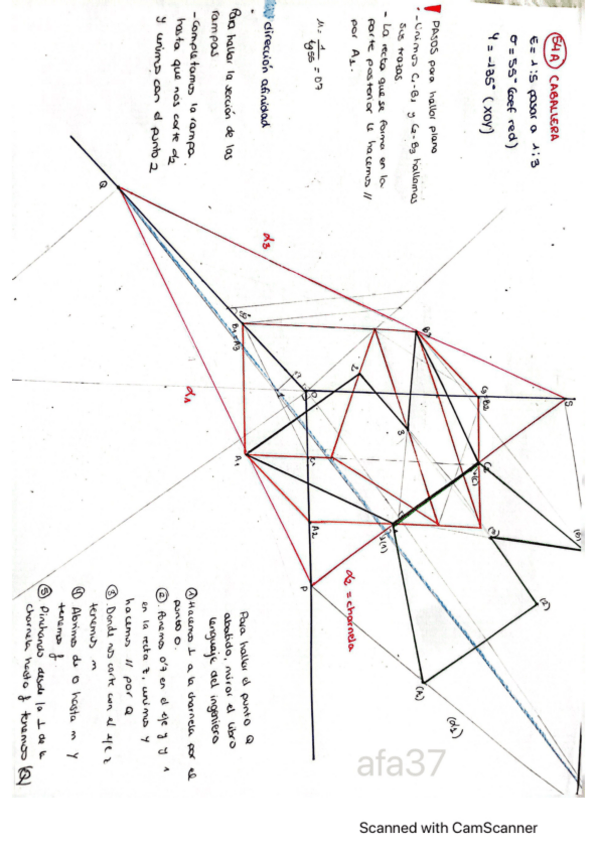 54A) CABALLERA
E = 1:5 pasar a 1:3
σ = 55° (coef red)
φ = -135° (XOY)
PASOS para hallar plano
- Unimos C1-B1 y C2-B3 hallamos
sus trazas
- La recta que se forma en la
parte posterior le hacemos //
por A1.
μ = 1/tg55 = 0'7
dirección afinidad
Para hallar la sección de las
rampas
- Completamos la rampa
hasta que nos corte α2
y unimos con el punto 2
Para hallar el punto Q
abatido, mirar el libro
lenguaje del ingeniero
① Hacemos ⊥ a la charnela por el
punto O.
② Ponemos 0'7 en el eje y y 1
en la recta t, unimos y
hacemos // por Q
③ Donde nos corte con el eje z
tenemos m
④ Abrimos de O hasta m y
tenemos f
⑤ Pinchando desde la ⊥ de la
charnela hasta f tenemos (Q)
Q
α3
α1
55°
A1
B3
2
3
O
C2
S
A2
P
α2 = charnela
(1)
(2)
(α1)
afa37
Scanned with CamScanner